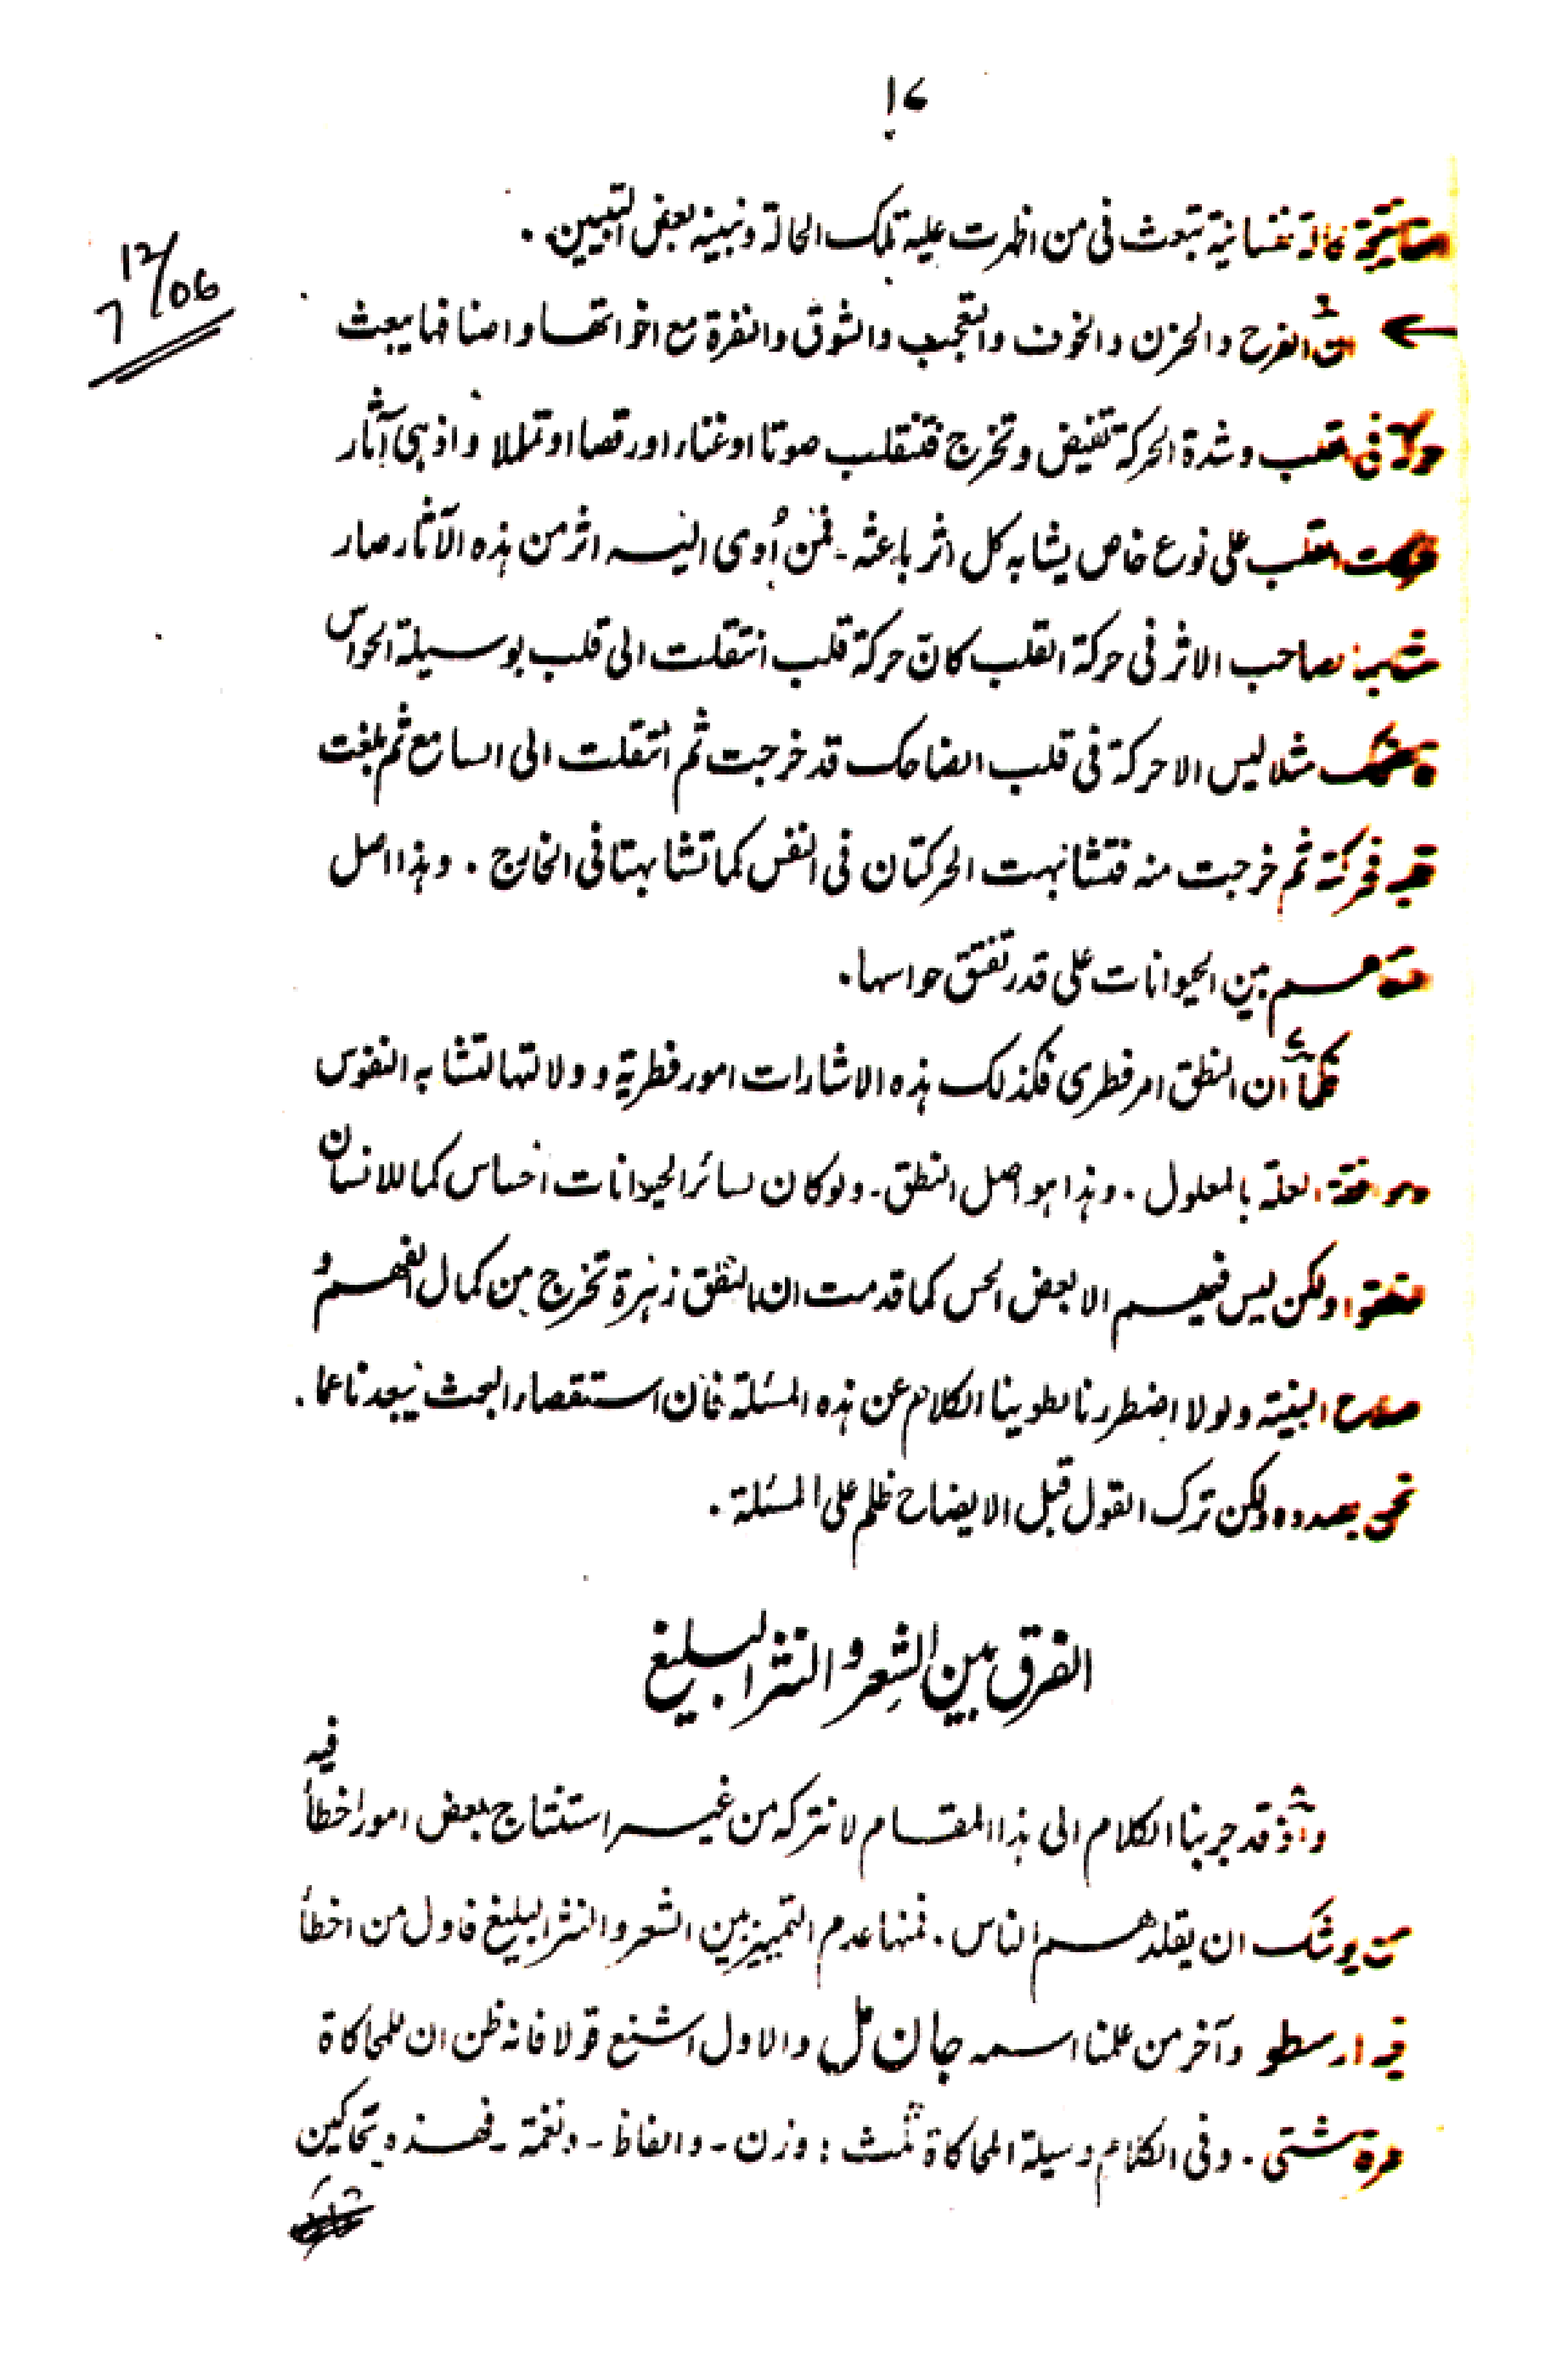 ١٧
12/06
7
حالة نفسانية تبعث في من اظهرت عليه تلك الحالة ونبينه بعض التبيين.
ان الفرح والحزن والخوف والتعجب والشوق والنفرة مع اخواتها واصنافها يبعث
في القلب وشدة الحركة تفيض وتخرج فتنقلب صوتا او غناء او رقصا او تململا واذ هى آثار
القلب على نوع خاص يشابه كل اثر باعثه - فمن اُدى اليه اثر من هذه الآثار صار
صاحب الاثر في حركة القلب كانّ حركة قلب انتقلت الى قلب بوسيلة الحواس
مثلا ليس الا حركة في قلب الضاحك قد خرجت ثم انتقلت الى السامع ثم بلغت
فحركته ثم خرجت منه فتشابهت الحركتان في النفس كما تشابهتا في الخارج. وهذا اصل
بين الحيوانات على قدر تفتق حواسها.
فكما ان النطق امر فطرى فكذلك هذه الاشارات امور فطرية ودلالتها لتشابه النفوس
العلة بالمعلول. وهذا هو اصل النطق - ولو كان لسائر الحيوانات احساس كما للانسان
لنطقوا ولكن ليس فيهم الا بعض الحس كما قدمت ان النطق زهرة تخرج من كمال الفهم و
صلاح البنية ولولا اضطررنا لطوينا الكلام عن هذه المسئلة فان استقصاء البحث يبعدنا عما
نحن بصدده ولكن ترك القول قبل الايضاح ظلم على المسئلة.
الفرق بين الشعر والنثر البليغ
واذ قد جربنا الكلام الى هذا المقام لا نتركه من غير استنتاج بعض امور اخطأ فيه
من يوشك ان يقلدهم الناس. فمنها عدم التمييز بين الشعر والنثر البليغ فاول من اخطأ
فيه ارسطو وآخر من علمنا اسمه جان مل والاول اشنع قولا فانه ظن ان للمحاكاة
شتى. وفي الكلام وسيلة المحاكاة ثلث: وزن - والفاظ - ونغمة - فهذه